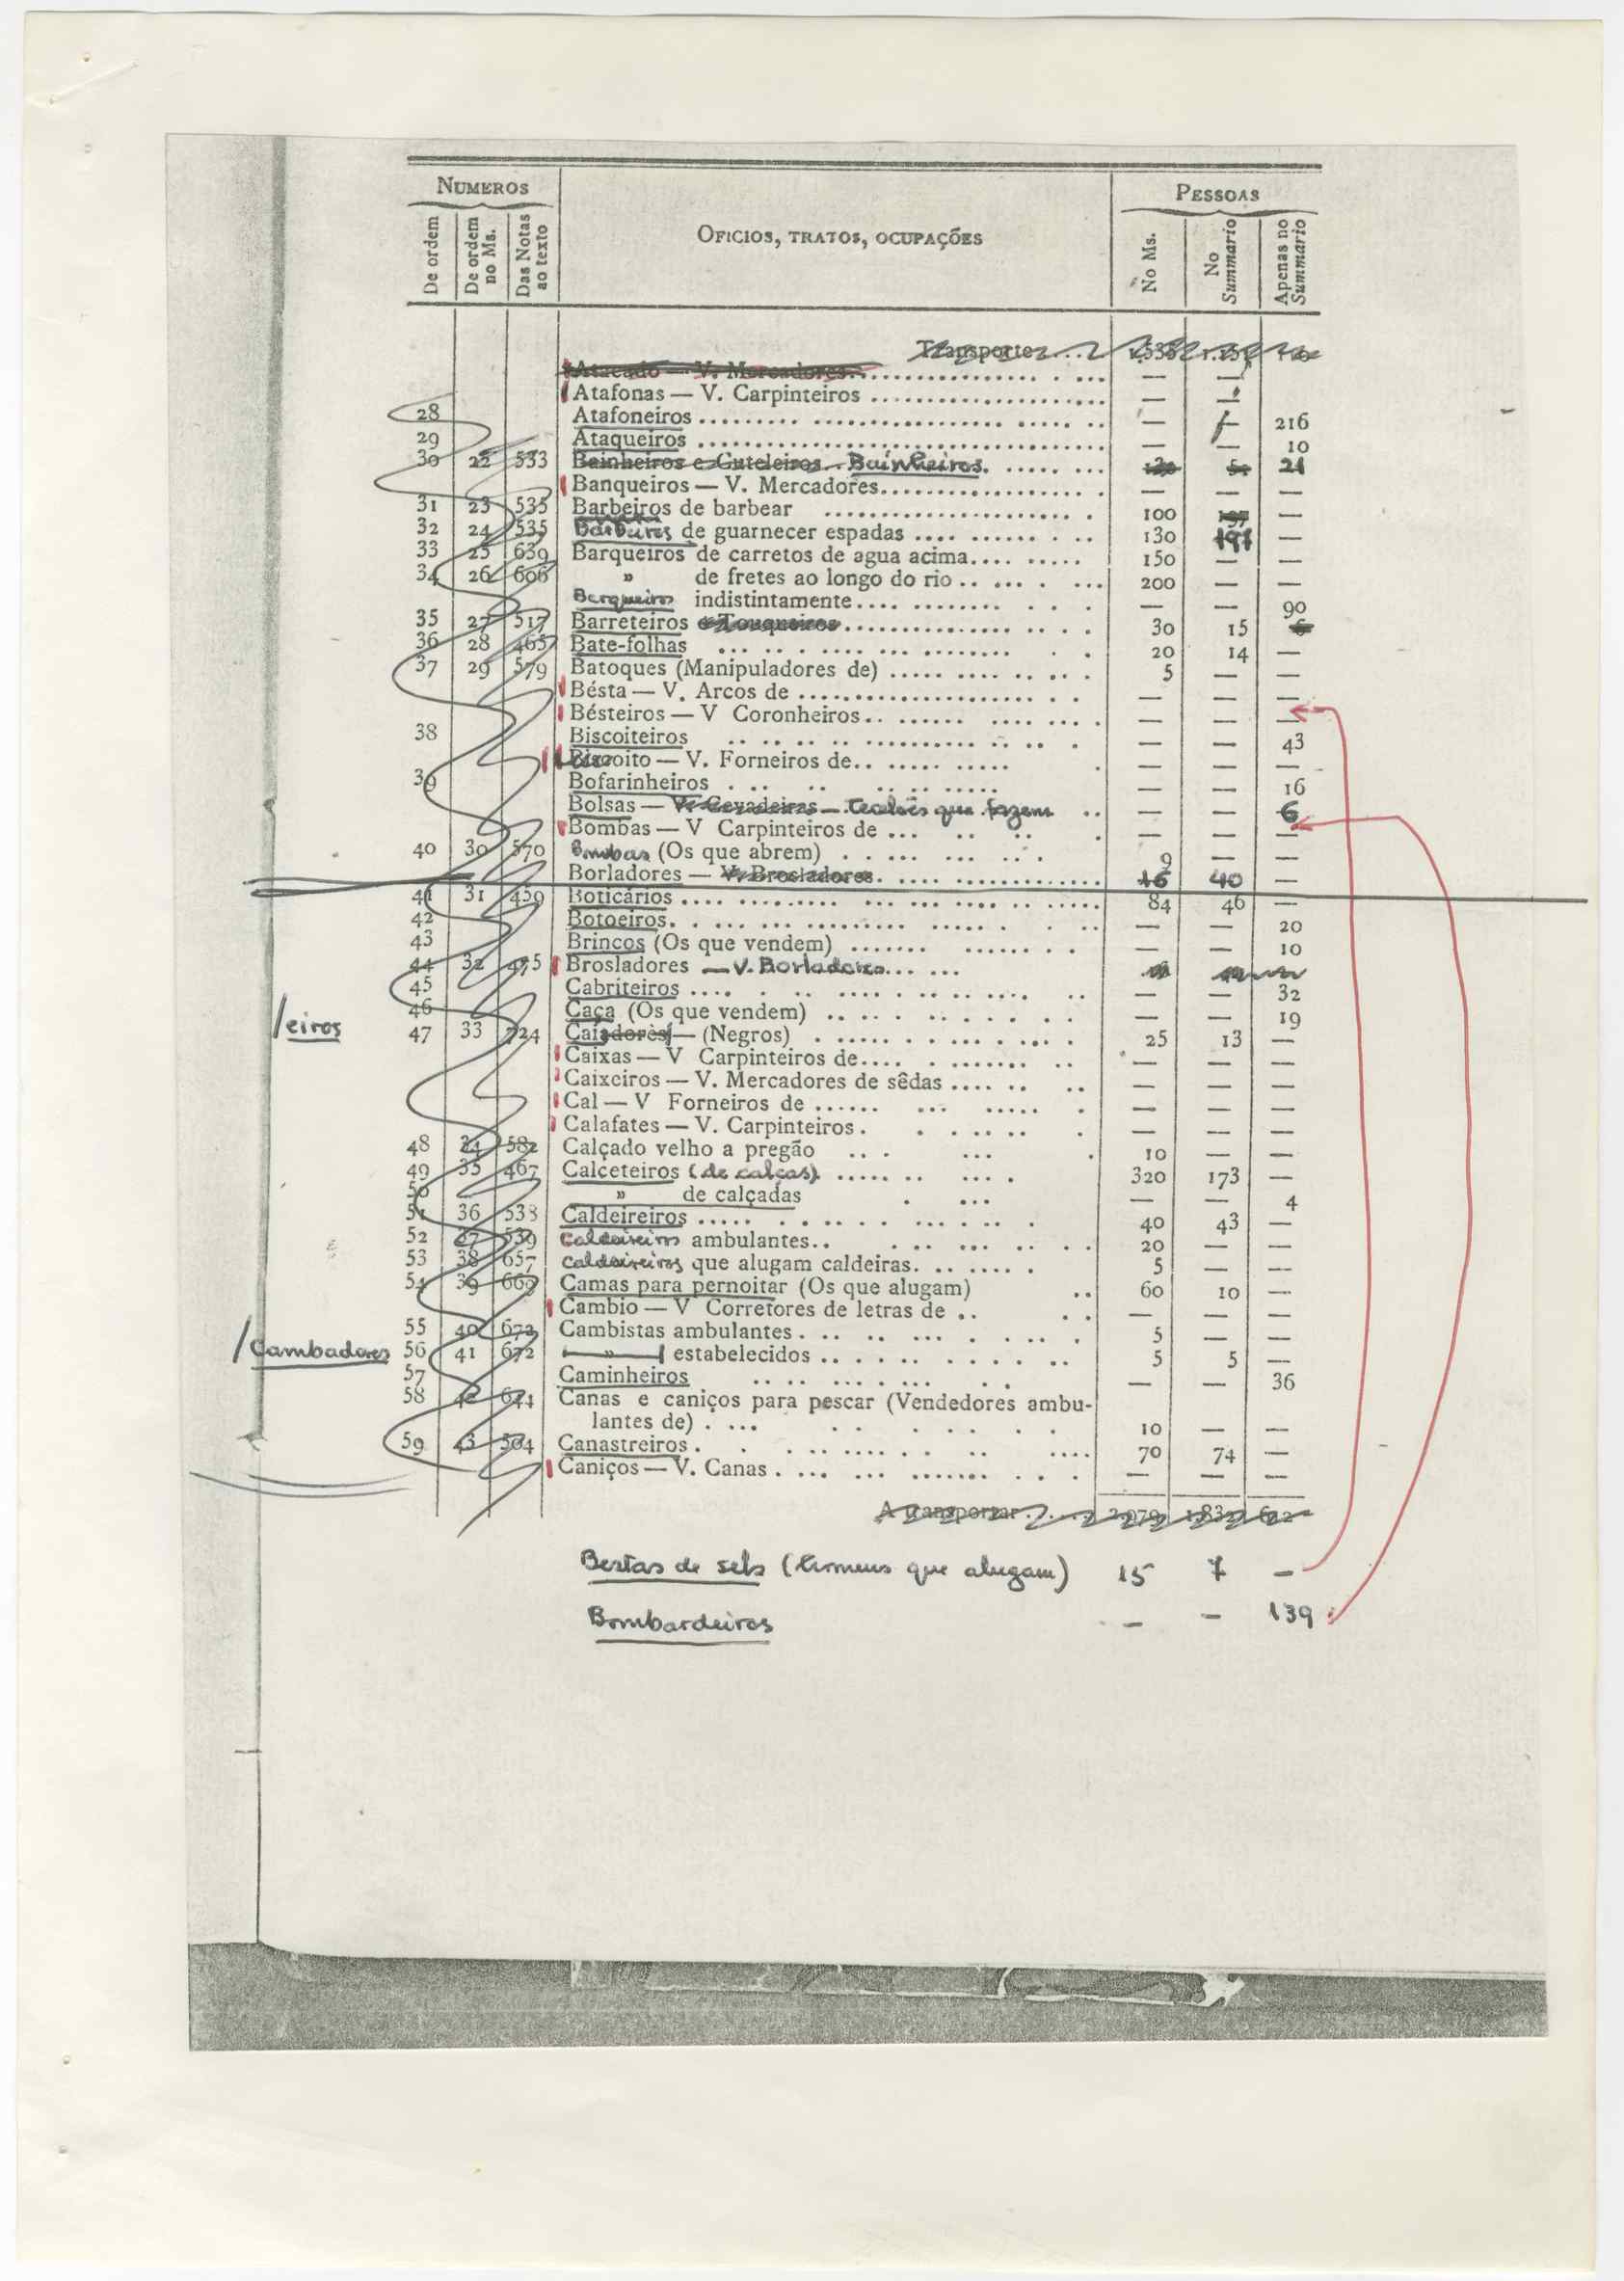 NUMEROS
PESSOAS
De ordem
De ordem no Ms.
Das Notas ao texto
OFICIOS, TRATOS, OCUPAÇÕES
No Ms.
No Summario
Apenas no Summario
Transporte
Atacado — V. Mercadores — —
Atafonas — V. Carpinteiros — —
28 Atafoneiros — — 216
29 Ataqueiros — — 10
30 22 533 Bainheiros e Cuteleiros Bainheiros. 21
Banqueiros — V. Mercadores — — —
31 23 535 Barbeiros de barbear 100 —
32 24 535 Barbeiros de guarnecer espadas 130 191 —
33 25 639 Barqueiros de carretos de agua acima 150 — —
34 26 606 » de fretes ao longo do rio 200 — —
Barqueiros indistintamente — — 90
35 27 517 Barreteiros e Touqueiros 30 15
36 28 465 Bate-folhas 20 14 —
37 29 579 Batoques (Manipuladores de) 5 — —
Bésta — V. Arcos de — — —
Bésteiros — V Coronheiros — — —
38 Biscoiteiros — — 43
Biscoito — V. Forneiros de — — —
39 Bofarinheiros — — 16
Bolsas — V. Cevadeiras — Tecelões que fazem — — 6
Bombas — V Carpinteiros de — — —
40 30 570 Bombas (Os que abrem) 9 — —
Borladores — V. Brosladores 16 40 —
41 31 459 Boticários 84 46 —
42 Botoeiros — — 20
43 Brincos (Os que vendem) — — 10
44 32 475 Brosladores — V. Borladores
45 Cabriteiros — — 32
46 Caça (Os que vendem) — — 19
/eiros
47 33 724 Caiadores — (Negros) 25 13 —
Caixas — V Carpinteiros de — — —
Caixeiros — V. Mercadores de sêdas — — —
Cal — V Forneiros de — — —
Calafates — V. Carpinteiros — — —
48 34 582 Calçado velho a pregão 10 — —
49 35 467 Calceteiros (de calças) 320 173 —
50 » de calçadas — — 4
51 36 538 Caldeireiros 40 43 —
52 37 539 Caldeireiros ambulantes 20 — —
53 38 657 Caldeireiros que alugam caldeiras 5 — —
54 39 669 Camas para pernoitar (Os que alugam) 60 10 —
Cambio — V Corretores de letras de — — —
55 40 672 Cambistas ambulantes 5 — —
/Cambadores 56 41 672 » estabelecidos 5 5 —
57 Caminheiros — — 36
58 42 Canas e caniços para pescar (Vendedores ambu-
lantes de) 10 — —
59 43 504 Canastreiros 70 74 —
Caniços — V. Canas — — —
A transportar
Bestas de sela (homens que alugam) 15 7 —
Bombardeiros — — 139